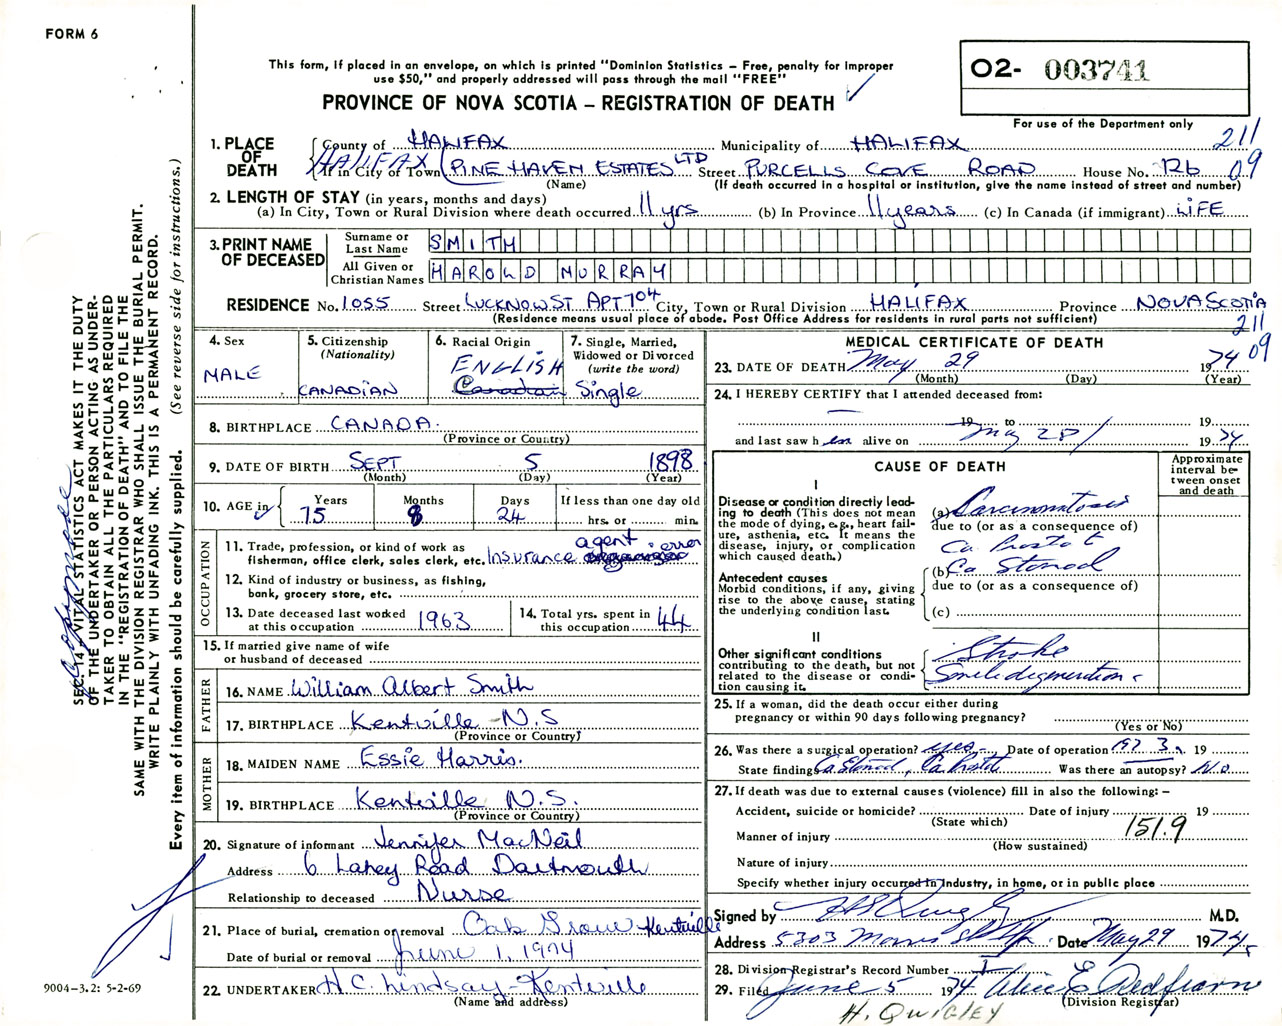 FORM 6
This form, if placed in an envelope, on which is printed "Dominion Statistics – Free, penalty for improper
use $50," and properly addressed will pass through the mail "FREE"
PROVINCE OF NOVA SCOTIA – REGISTRATION OF DEATH
02- 003741
For use of the Department only
211
09
1. PLACE OF DEATH
County of HALIFAX Municipality of HALIFAX
HALIFAX If in City or Town PINE HAVEN ESTATES LTD Street PURCELLS COVE ROAD House No. Rb
(Name) (If death occurred in a hospital or institution, give the name instead of street and number)
2. LENGTH OF STAY (in years, months and days)
(a) In City, Town or Rural Division where death occurred 11 yrs (b) In Province 11 years (c) In Canada (if immigrant) LIFE
3. PRINT NAME OF DECEASED
Surname or Last Name SMITH
All Given or Christian Names HAROLD MURRAY
RESIDENCE No. 1055 Street LUCKNOW ST. APT 704 City, Town or Rural Division HALIFAX Province NOVA SCOTIA
(Residence means usual place of abode. Post Office Address for residents in rural parts not sufficient)
211
09
4. Sex MALE
5. Citizenship (Nationality) CANADIAN
6. Racial Origin ENGLISH Canadian
7. Single, Married, Widowed or Divorced (write the word) Single
8. BIRTHPLACE CANADA.
(Province or Country)
9. DATE OF BIRTH SEPT 5 1898
(Month) (Day) (Year)
10. AGE in Years 75 Months 8 Days 24 If less than one day old hrs. or min.
OCCUPATION
11. Trade, profession, or kind of work as
fisherman, office clerk, sales clerk, etc. Insurance agent error
12. Kind of industry or business, as fishing,
bank, grocery store, etc.
13. Date deceased last worked at this occupation 1963
14. Total yrs. spent in this occupation 44
15. If married give name of wife
or husband of deceased
FATHER
16. NAME William Albert Smith
17. BIRTHPLACE Kentville N.S
(Province or Country)
MOTHER
18. MAIDEN NAME Essie Harris.
19. BIRTHPLACE Kentville N.S.
(Province or Country)
20. Signature of informant Jennifer MacNeil
Address 6 Lahey Road Dartmouth
Relationship to deceased Nurse
21. Place of burial, cremation or removal Oak Grove Kentville
Date of burial or removal June 1, 1974
22. UNDERTAKER H.C. Lindsay - Kentville
(Name and address)
MEDICAL CERTIFICATE OF DEATH
23. DATE OF DEATH May 29 1974
(Month) (Day) (Year)
24. I HEREBY CERTIFY that I attended deceased from:
19 to 19
and last saw him alive on May 28 1974
CAUSE OF DEATH
Approximate interval between onset and death
I
Disease or condition directly leading to death (This does not mean the mode of dying, e.g., heart failure, asthenia, etc. It means the disease, injury, or complication which caused death.)
(a) Carcinomatosis
due to (or as a consequence of)
Ca Prostate
Antecedent causes
Morbid conditions, if any, giving rise to the above cause, stating the underlying condition last.
(b) Ca
due to (or as a consequence of)
(c)
II
Other significant conditions
contributing to the death, but not related to the disease or condition causing it.
Stroke
Senile degeneration
25. If a woman, did the death occur either during
pregnancy or within 90 days following pregnancy?
(Yes or No)
26. Was there a surgical operation? yes Date of operation 1973 19
State findings Ca Ca Prostate Was there an autopsy? No.
27. If death was due to external causes (violence) fill in also the following: –
Accident, suicide or homicide? Date of injury 19
(State which)
151.9
Manner of injury
(How sustained)
Nature of injury
Specify whether injury occurred in industry, in home, or in public place
Signed by M.D.
Address 5303 Morris St Hfx Date May 29 1974
28. Division Registrar's Record Number
29. Filed June 5 1974 Alice E Redfearn
(Division Registrar)
H. QUIGLEY
SEC. 14 VITAL STATISTICS ACT MAKES IT THE DUTY
OF THE UNDERTAKER OR PERSON ACTING AS UNDER-
TAKER TO OBTAIN ALL THE PARTICULARS REQUIRED
IN THE "REGISTRATION OF DEATH" AND TO FILE THE
SAME WITH THE DIVISION REGISTRAR WHO SHALL ISSUE THE BURIAL PERMIT.
WRITE PLAINLY WITH UNFADING INK. THIS IS A PERMANENT RECORD.
Every item of information should be carefully supplied. (See reverse side for instructions.)
9004-3.2: 5-2-69